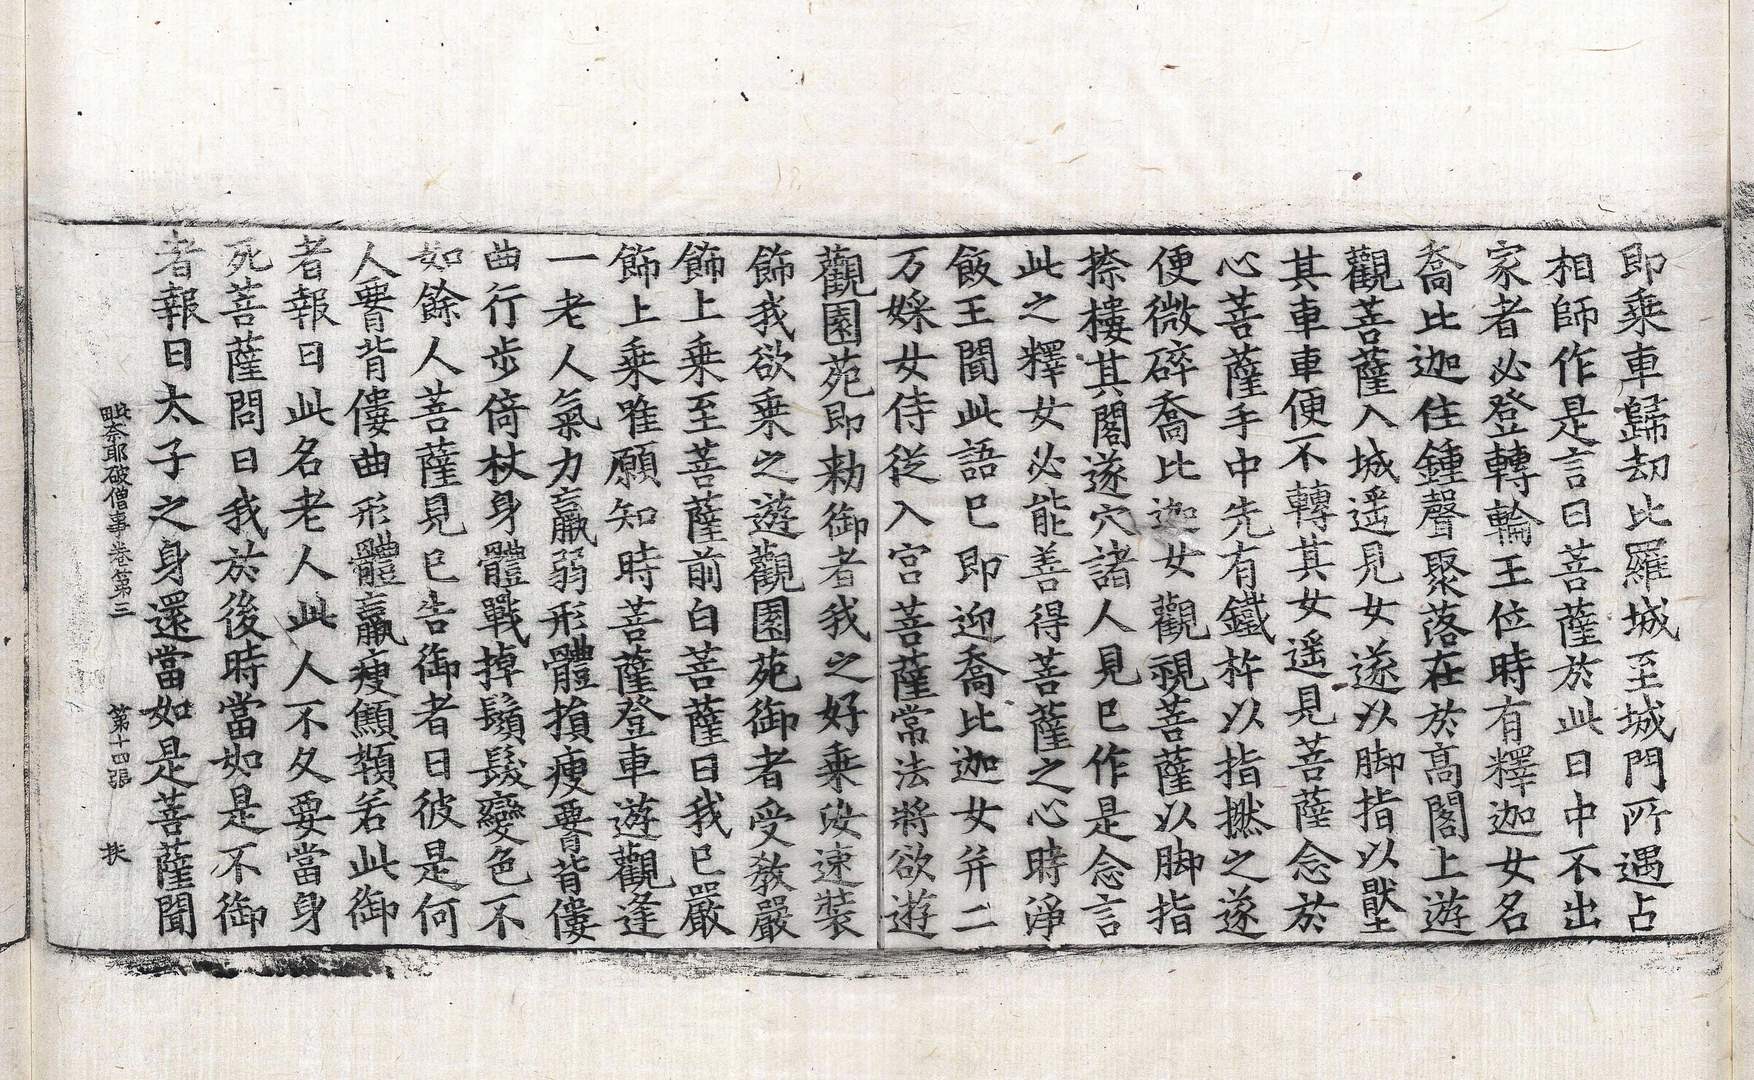 即乘車歸劫比羅城至城門所遇占
相師作是言曰菩薩於此日中不出
家者必登轉輪王位時有釋迦女名
喬比迦住鍾聲聚落在於高閣上遊
觀菩薩入城遥見女遂以脚指以壓
其車車便不轉其女遥見菩薩念於
心菩薩手中先有鐵杵以指撚之遂
便微碎喬比迦女觀視菩薩以脚指
捺樓其閣遂穴諸人見已作是念言
此之釋女必能善得菩薩之心時淨
飯王聞此語已即迎喬比迦女并二
万婇女侍從入宫菩薩常法將欲遊
觀園苑即勑御者我之好乘汝速裝
飾我欲乘之遊觀園苑御者受教嚴
飾上乘至菩薩前白菩薩曰我已嚴
飾上乘唯願知時菩薩登車遊觀逢
一老人氣力羸弱形體損瘦䯒背僂
曲行步倚杖身體戰掉鬚髮變色不
如餘人菩薩見已告御者曰彼是何
人䯒背僂曲形體羸瘦顦顇若此御
者報曰此名老人此人不久要當身
死菩薩問曰我於後時當如是不御
者報曰太子之身還當如是菩薩聞
毗奈耶破僧事卷第三 第十四張 扶